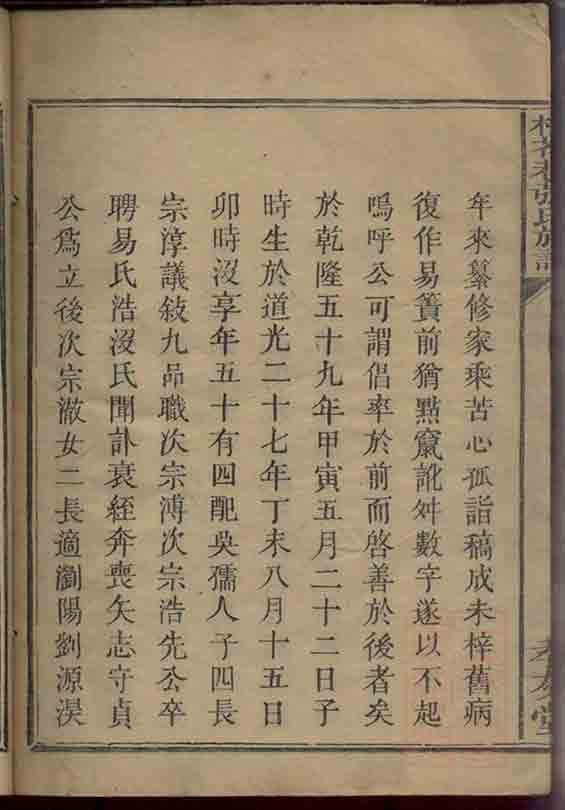 張氏族譜
堂
年來纂修家乘苦心孤詣稿成未梓舊病
復作易簀前猶點竄訛舛數字遂以不起
嗚呼公可謂倡率於前而啓善於後者矣
於乾隆五十九年甲寅五月二十二日子
時生於道光二十七年丁未八月十五日
卯時沒享年五十有四配吳孺人子四長
宗淳議敍九品職次宗溥次宗浩先公卒
聘易氏浩沒氏聞訃衰絰奔喪矢志守貞
公爲立後次宗澈女二長適瀏陽劉源淏